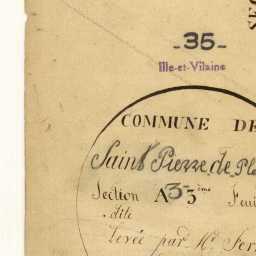 -35-
Ille-et-Vilaine
COMMUNE DE
Saint Pierre de Pl
Section A3 3ème Feui
dite
Levée par Mr Ferr